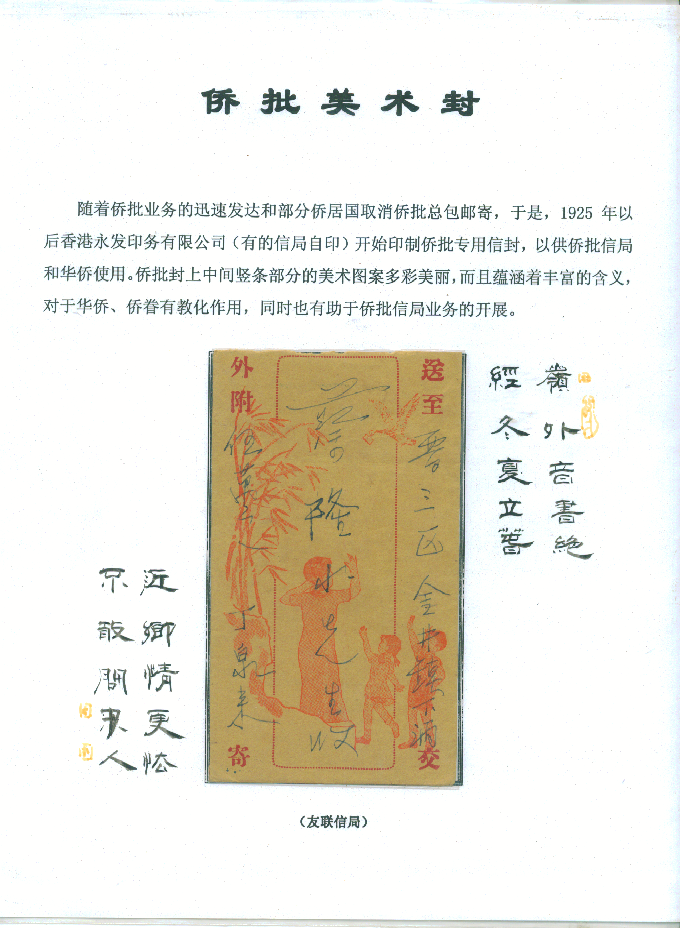 侨批美术封
随着侨批业务的迅速发达和部分侨居国取消侨批总包邮寄，于是，1925 年以
后香港永发印务有限公司（有的信局自印）开始印制侨批专用信封，以供侨批信局
和华侨使用。侨批封上中间竖条部分的美术图案多彩美丽，而且蕴涵着丰富的含义，
对于华侨、侨眷有教化作用，同时也有助于侨批信局业务的开展。
嶺外音書絶
經冬夏立
送至晋三区金井鎮下 交
隆水先生收
外附 寄
近鄉情更怯
不敢問来人
（友联信局）